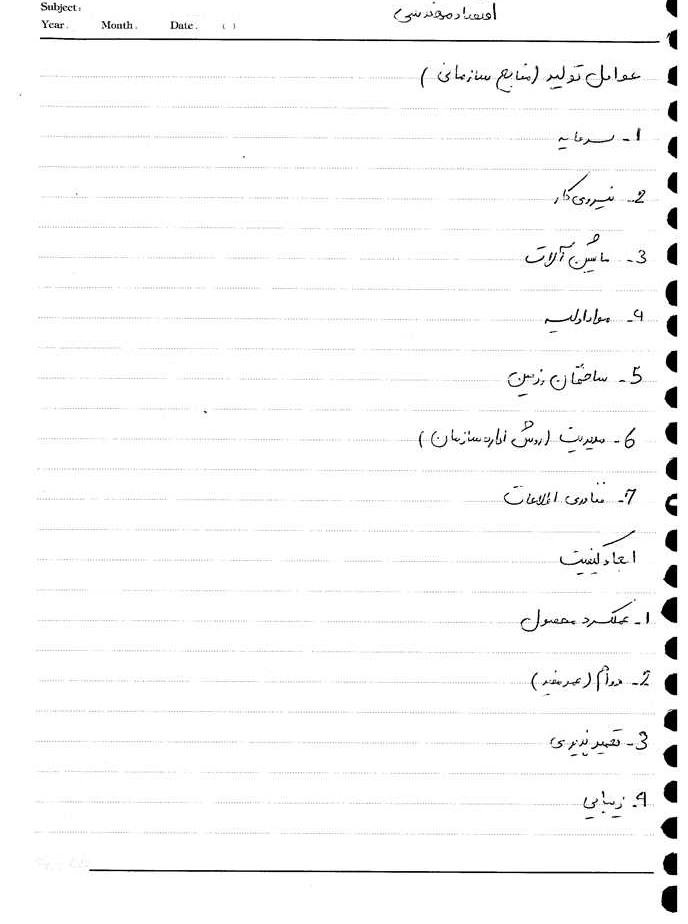 Subject:
Year. Month. Date. ( )
اقتصاد مهندسی
عوامل تولید (منابع سازمانی)
1- سرمایه
2- نیروی کار
3- ماشین آلات
4- مواد اولیه
5- ساختمان و زمین
6- مدیریت (روش اداره سازمان)
7- فناوری اطلاعات
ابعاد کیفیت
1- عملکرد محصول
2- دوام (عمر مفید)
3- تعمیر پذیری
4- زیبایی